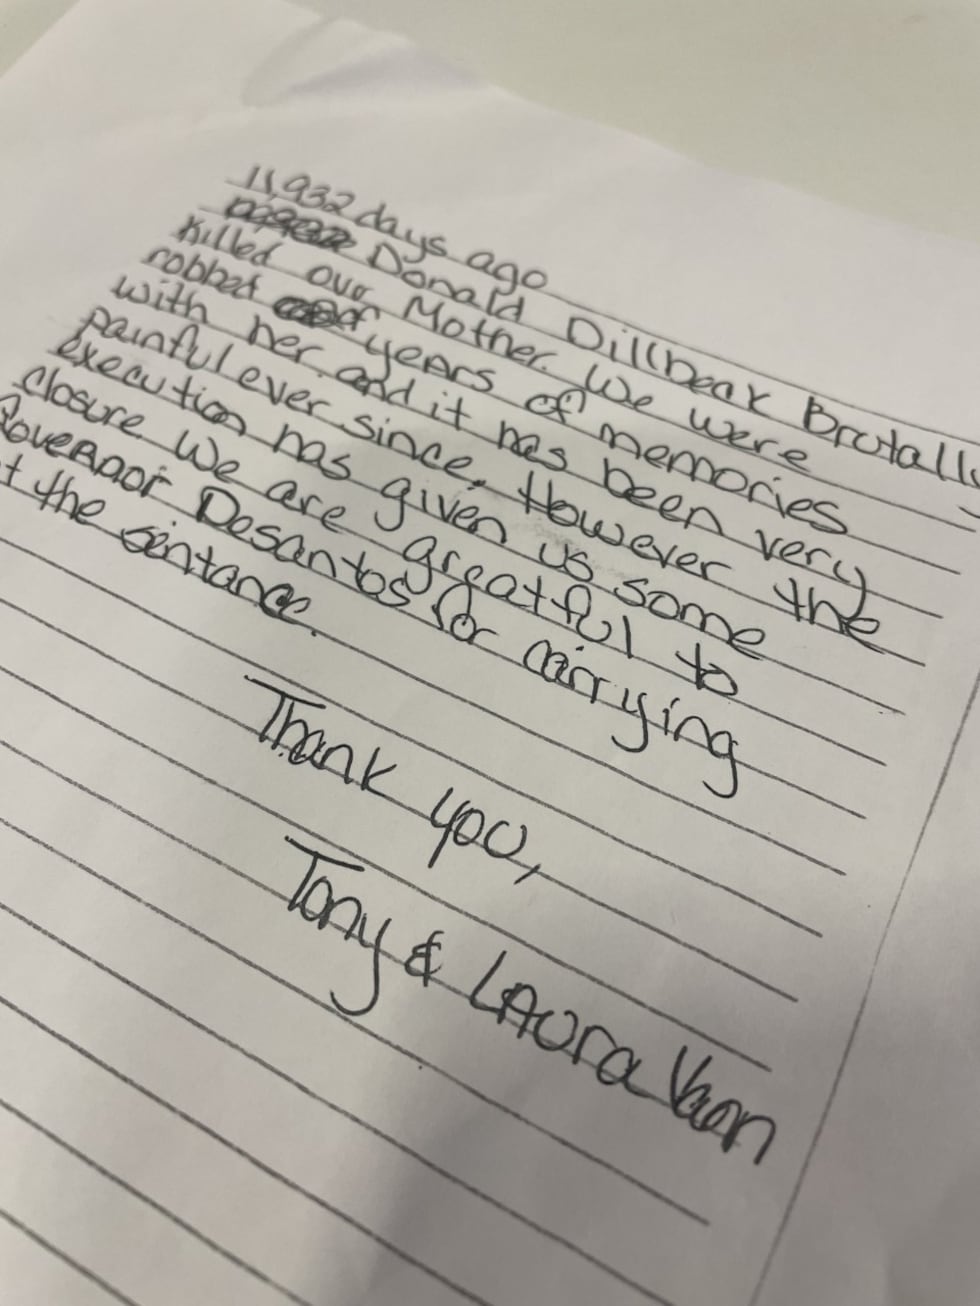 11,932 days ago
Donald Dillbeak Brutally
Killed our Mother. We were
robbed of years of memories
with her and it has been very
painful ever since. However the
execution has given us some
closure. We are greatful to
Governor Desantos for carrying
the sentance.
Thank you,
Tony & LAura Vann